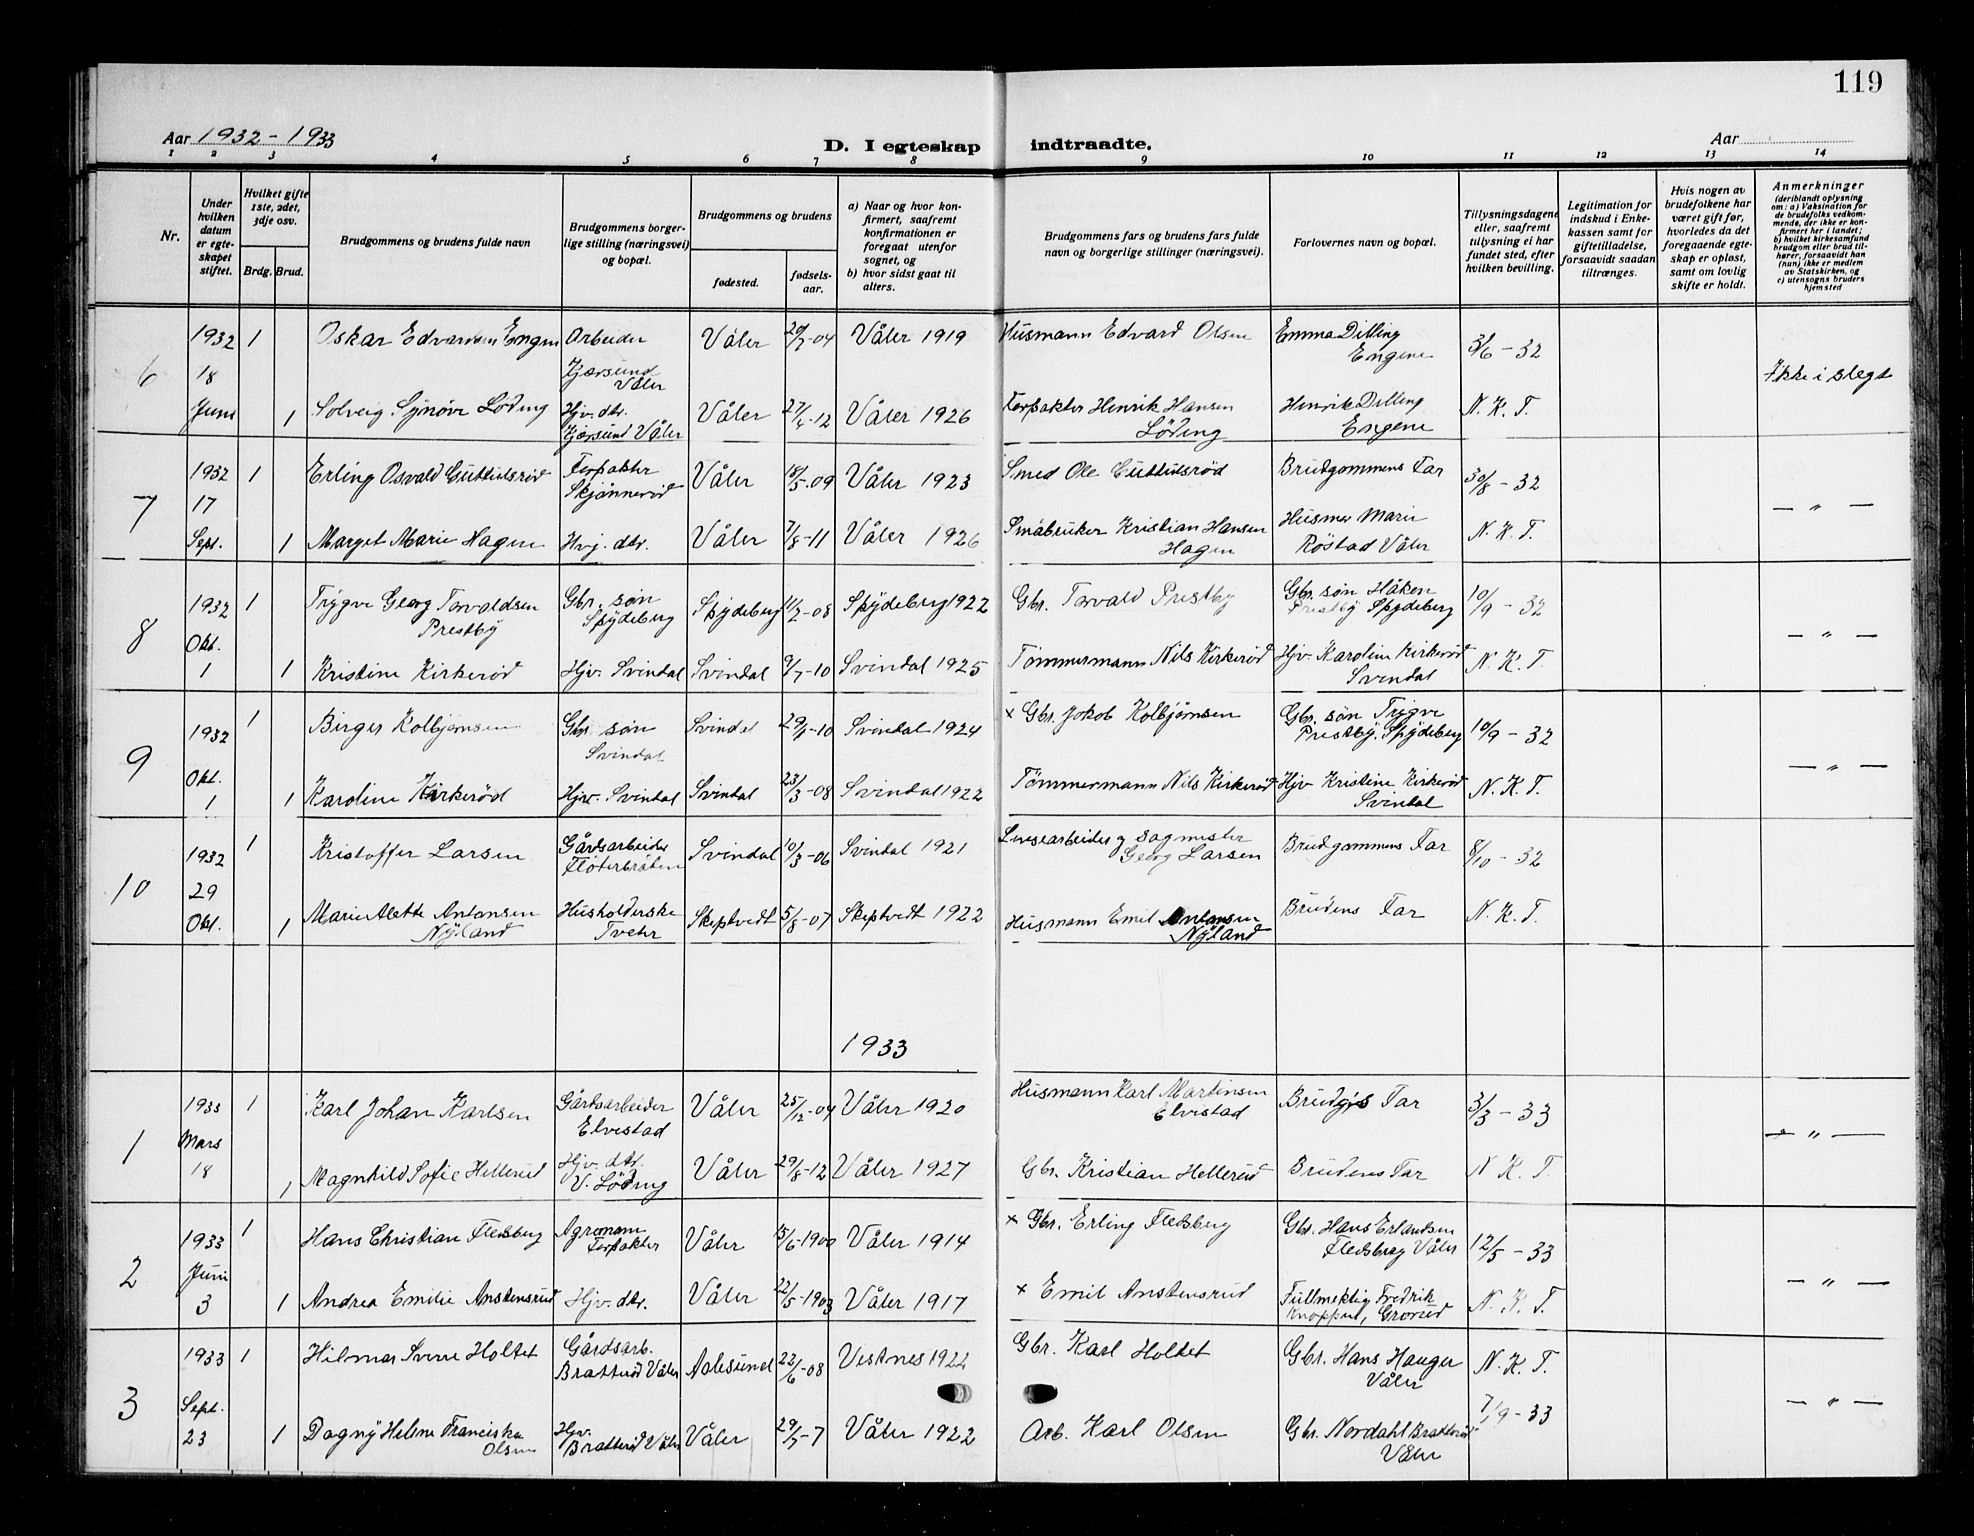 119
Aar 1932-1933
D. I egteskap indtraadte.
Aar
1 2 3 4 5 6 7 8 9 10 11 12 13 14
Nr.
Under hvilken datum er egteskapet stiftet.
Hvilket gifte 1ste, 2det, 3dje osv.
Brdg. Brud.
Brudgommens og brudens fulde navn
Brudgommens borgerlige stilling (næringsvei) og bopæl.
Brudgommens og brudens
fødested.
fødselsaar.
a) Naar og hvor konfirmert, saafremt konfirmationen er foregaat utenfor sognet, og
b) hvor sidst gaat til alters.
Brudgommens fars og brudens fars fulde navn og borgerlige stillinger (næringsvei).
Forlovernes navn og bopæl.
Tillysningsdagene eller, saafremt tillysning ei har fundet sted, efter hvilken bevilling.
Legitimation for indskud i Enkekassen samt for giftetilladelse, forsaavidt saadan tiltrænges.
Hvis nogen av brudefolkene har været gift før, hvorledes da det foregaaende egteskap er opløst, samt om lovlig skifte er holdt.
Anmerkninger
(deriblandt oplysning om: a) Vaksination for de brudefolks vedkommende, der ikke er konfirmert her i landet; b) hvilket kirkesamfund brudgom eller brud tilhører, forsaavidt han (hun) ikke er medlem av Statskirken, og c) utensogns bruders hjemsted
6 1932 18 Juni
1 Oskar Edvardsen Engen Arbeider Kjærsund Våler Våler 20/7-04 Våler 1919 Husmann Edvard Olsen Emma Dilling Engene 3/6-32 Ikke i slegt
1 Solveig Synøve Løding Hjv. dtr. Kjærsund Våler Våler 27/4-12 Våler 1926 Forpakter Henrik Hansen Løding Henrik Dilling Engene N. K. T.
7 1932 17 Sept.
1 Erling Osvald Guttulsrød Forpakter Skjønnerød Våler 18/5-09 Våler 1923 Smed Ole Guttulsrød Brudgommens Far 30/8-32 — " —
1 Marget Marie Hagen Hvj. dtr. Våler 7/8-11 Våler 1926 Småbruker Kristian Hansen Hagen Husmor Marie Røstad Våler N. K. T.
8 1932 Okt. 1
1 Trygve Georg Torvaldsen Prestby Gbr. søn Spydeberg Spydeberg 11/2-08 Spydeberg 1922 Gbr. Torvald Prestby Gbr. søn Håken Prestby Spydeberg 10/9-32 — " —
1 Kristine Kirkerød Hjv. Svindal Svindal 9/7-10 Svindal 1925 Tømmermann Nils Kirkerød Hjv. Karoline Kirkerød Svindal N. K. T.
9 1932 Okt. 1
1 Birger Kolbjørnsen Gbr. søn Svindal Svindal 29/1-10 Svindal 1924 × Gbr. Jokob Kolbjørnsen Gbr. søn Trygve Prestby. Spydeberg 10/9-32 — " —
1 Karoline Kirkerød Hjv. Svindal Svindal 23/3-08 Svindal 1922 Tømmermann Nils Kirkerød Hjv Kristine Kirkerød Svindal N. K. T.
10 1932 29 Okt.
1 Kristoffer Larsen Gårdsarbeider Fløterbråten Svindal 10/3-06 Svindal 1921 Sagmester Georg Larsen Brudgommens Far 8/10-32
1 Marie Alette Antonsen Nyland Husholderske Tveter Skeptvedt 5/8-07 Skeptvedt 1922 Husmann Emil Antonsen Nyland Brudens Far N. K. T.
1933
1 1933 Mars 18
1 Karl Johan Karlsen Gårdsarbeider Elvestad Våler 25/12-04 Våler 1920 Husmann Karl Martinsen Elvestad Brudg's Far 3/3-33 — " —
1 Magnhild Sofie Hellerud Hjv. dtr. V. Løding Våler 29/8-12 Våler 1927 Gbr. Kristian Hellerud Brudens Far N K. T.
2 1933 Juni 3
1 Hans Christian Flesberg Agronom Forpakter Våler 15/6-1900 Våler 1914 × Gbr. Erling Flesberg Gbr. Hans Erlandsen Flesberg Våler 12/5-33 — " —
1 Andrea Emilie Anstensrud Hjv. dtr. Våler 22/5-1903 Våler 1917 × Emil Anstensrud Fullmektig Fredrik Grorud N. K. T.
3 1933 Sept. 23
1 Hilmar Sverre Holtet Gårdsarb. Bratterød Våler Aalesund 22/6-08 Vestnes 1922 Gbr. Karl Holtet Gbr. Hans Hauger Våler N. K. T. — " —
1 Dagny Helene Franciska Olsen Hjv. Bratterød Våler Våler 29/7-7 Våler 1922 Arb. Karl Olsen Gbr. Nordahl Bratterød Våler 7/9-33